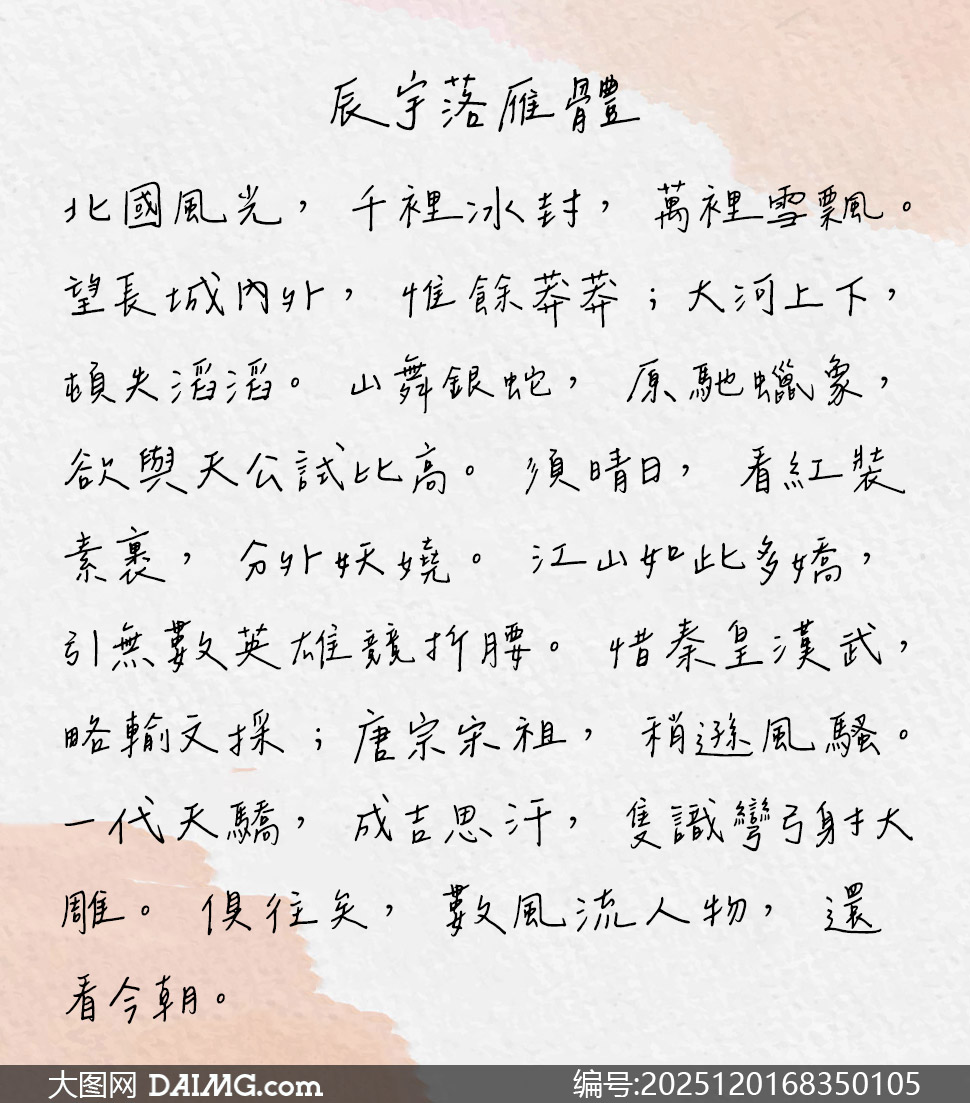 辰宇落雁體
北國風光，千裡冰封，萬裡雪飄。
望長城內外，惟餘莽莽；大河上下，
頓失滔滔。山舞銀蛇，原馳蠟象，
欲與天公試比高。須晴日，看紅裝
素裹，分外妖嬈。江山如此多嬌，
引無數英雄競折腰。惜秦皇漢武，
略輸文採；唐宗宋祖，稍遜風騷。
一代天驕，成吉思汗，隻識彎弓射大
雕。俱往矣，數風流人物，還
看今朝。
大图网 DAIMG.com
编号:2025120168350105